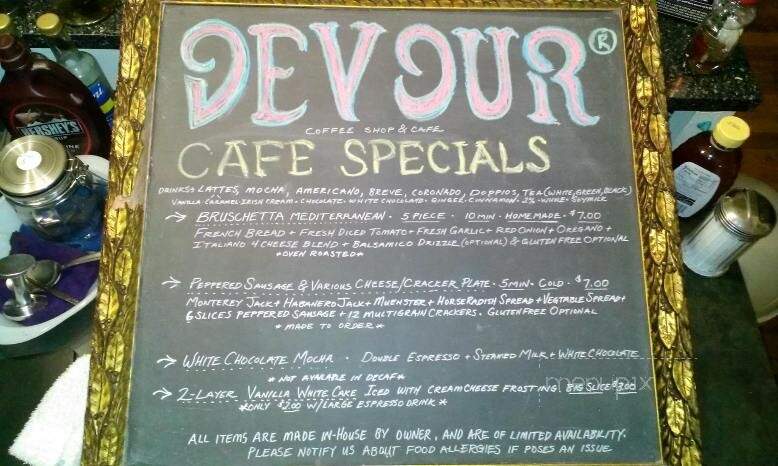 DEVOUR®
COFFEE SHOP & CAFE
CAFE SPECIALS
DRINKS: LATTES, MOCHA, AMERICANO, BREVE, CORONADO, DOPPIOS, TEA (WHITE, GREEN, BLACK)
VANILLA CARAMEL IRISH CREAM · CHOCOLATE · WHITE CHOCOLATE · GINGER · CINNAMON · 2% · WHOLE · SOYMILK
→ BRUSCHETTA MEDITERRANEAN · 5 PIECE · 10 MIN · HOMEMADE · $7.00
FRENCH BREAD + FRESH DICED TOMATO + FRESH GARLIC + RED ONION + OREGANO +
ITALIANO 4 CHEESE BLEND + BALSAMICO DRIZZLE (OPTIONAL) & GLUTEN FREE OPTIONAL
* OVEN ROASTED *
→ PEPPERED SAUSAGE & VARIOUS CHEESE/CRACKER PLATE · 5 MIN · COLD · $7.00
MONTEREY JACK + HABANERO JACK + MUENSTER + HORSERADISH SPREAD + VEGTABLE SPREAD +
6 SLICES PEPPERED SAUSAGE + 12 MULTIGRAIN CRACKERS. GLUTEN FREE OPTIONAL
* MADE TO ORDER *
→ WHITE CHOCOLATE MOCHA · DOUBLE ESPRESSO + STEAMED MILK + WHITE CHOCOLATE
* NOT AVAILABLE IN DECAF *
→ 2-LAYER VANILLA WHITE CAKE ICED WITH CREAM CHEESE FROSTING. BIG SLICE $3.00
* ONLY $2.00 W/LARGE ESPRESSO DRINK *
ALL ITEMS ARE MADE IN-HOUSE BY OWNER, AND ARE OF LIMITED AVAILABILITY.
PLEASE NOTIFY US ABOUT FOOD ALLERGIES IF POSES AN ISSUE
HERSHEY'S
menupix